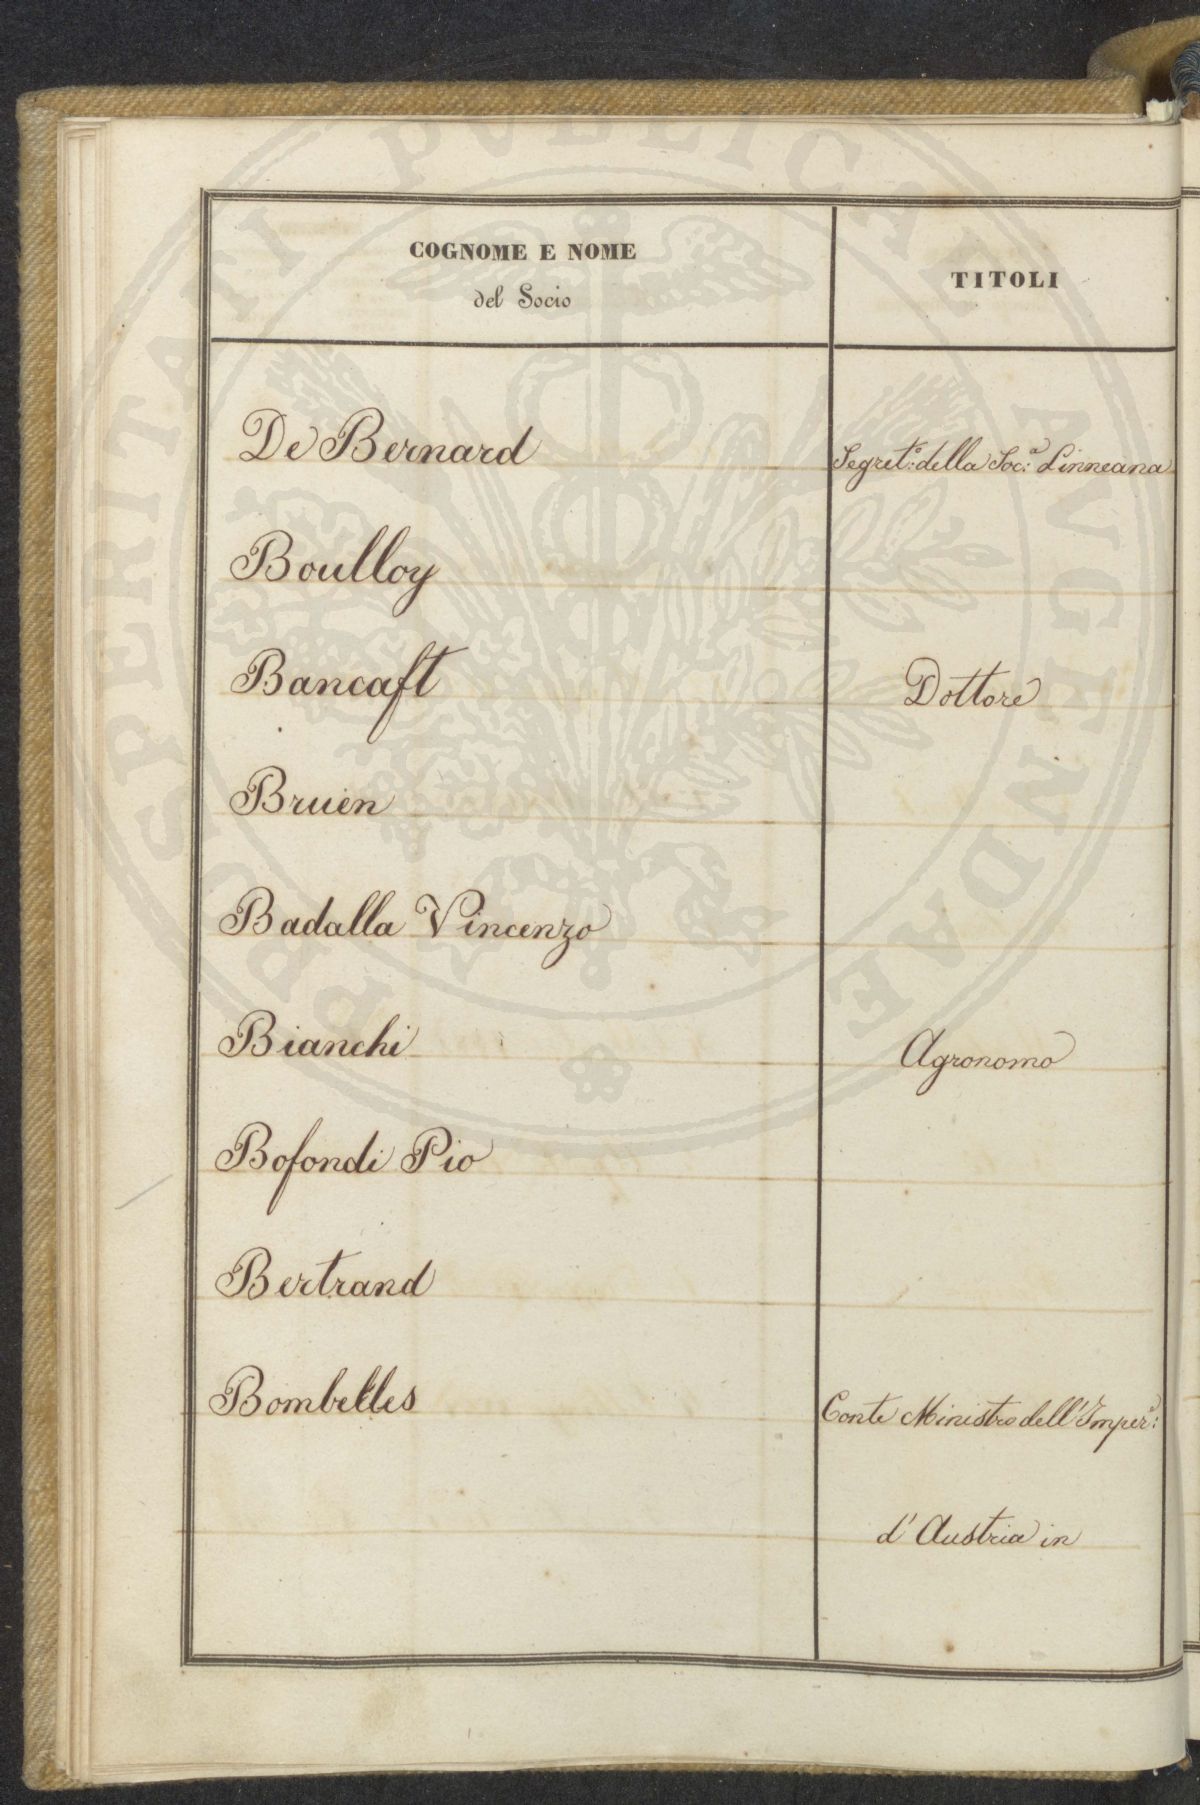 PROSPERITATI PUBLICAE AUGENDAE
COGNOME E NOME
del Socio
TITOLI
De Bernard
Segret.o della Soc.a Linneana
Boulloy
Bancaft
Dottore
Bruen
Badalla Vincenzo
Bianchi
Agronomo
Bofondi Pio
Bertrand
Bombelles
Conte Ministro dell'Imper.e
d'Austria in